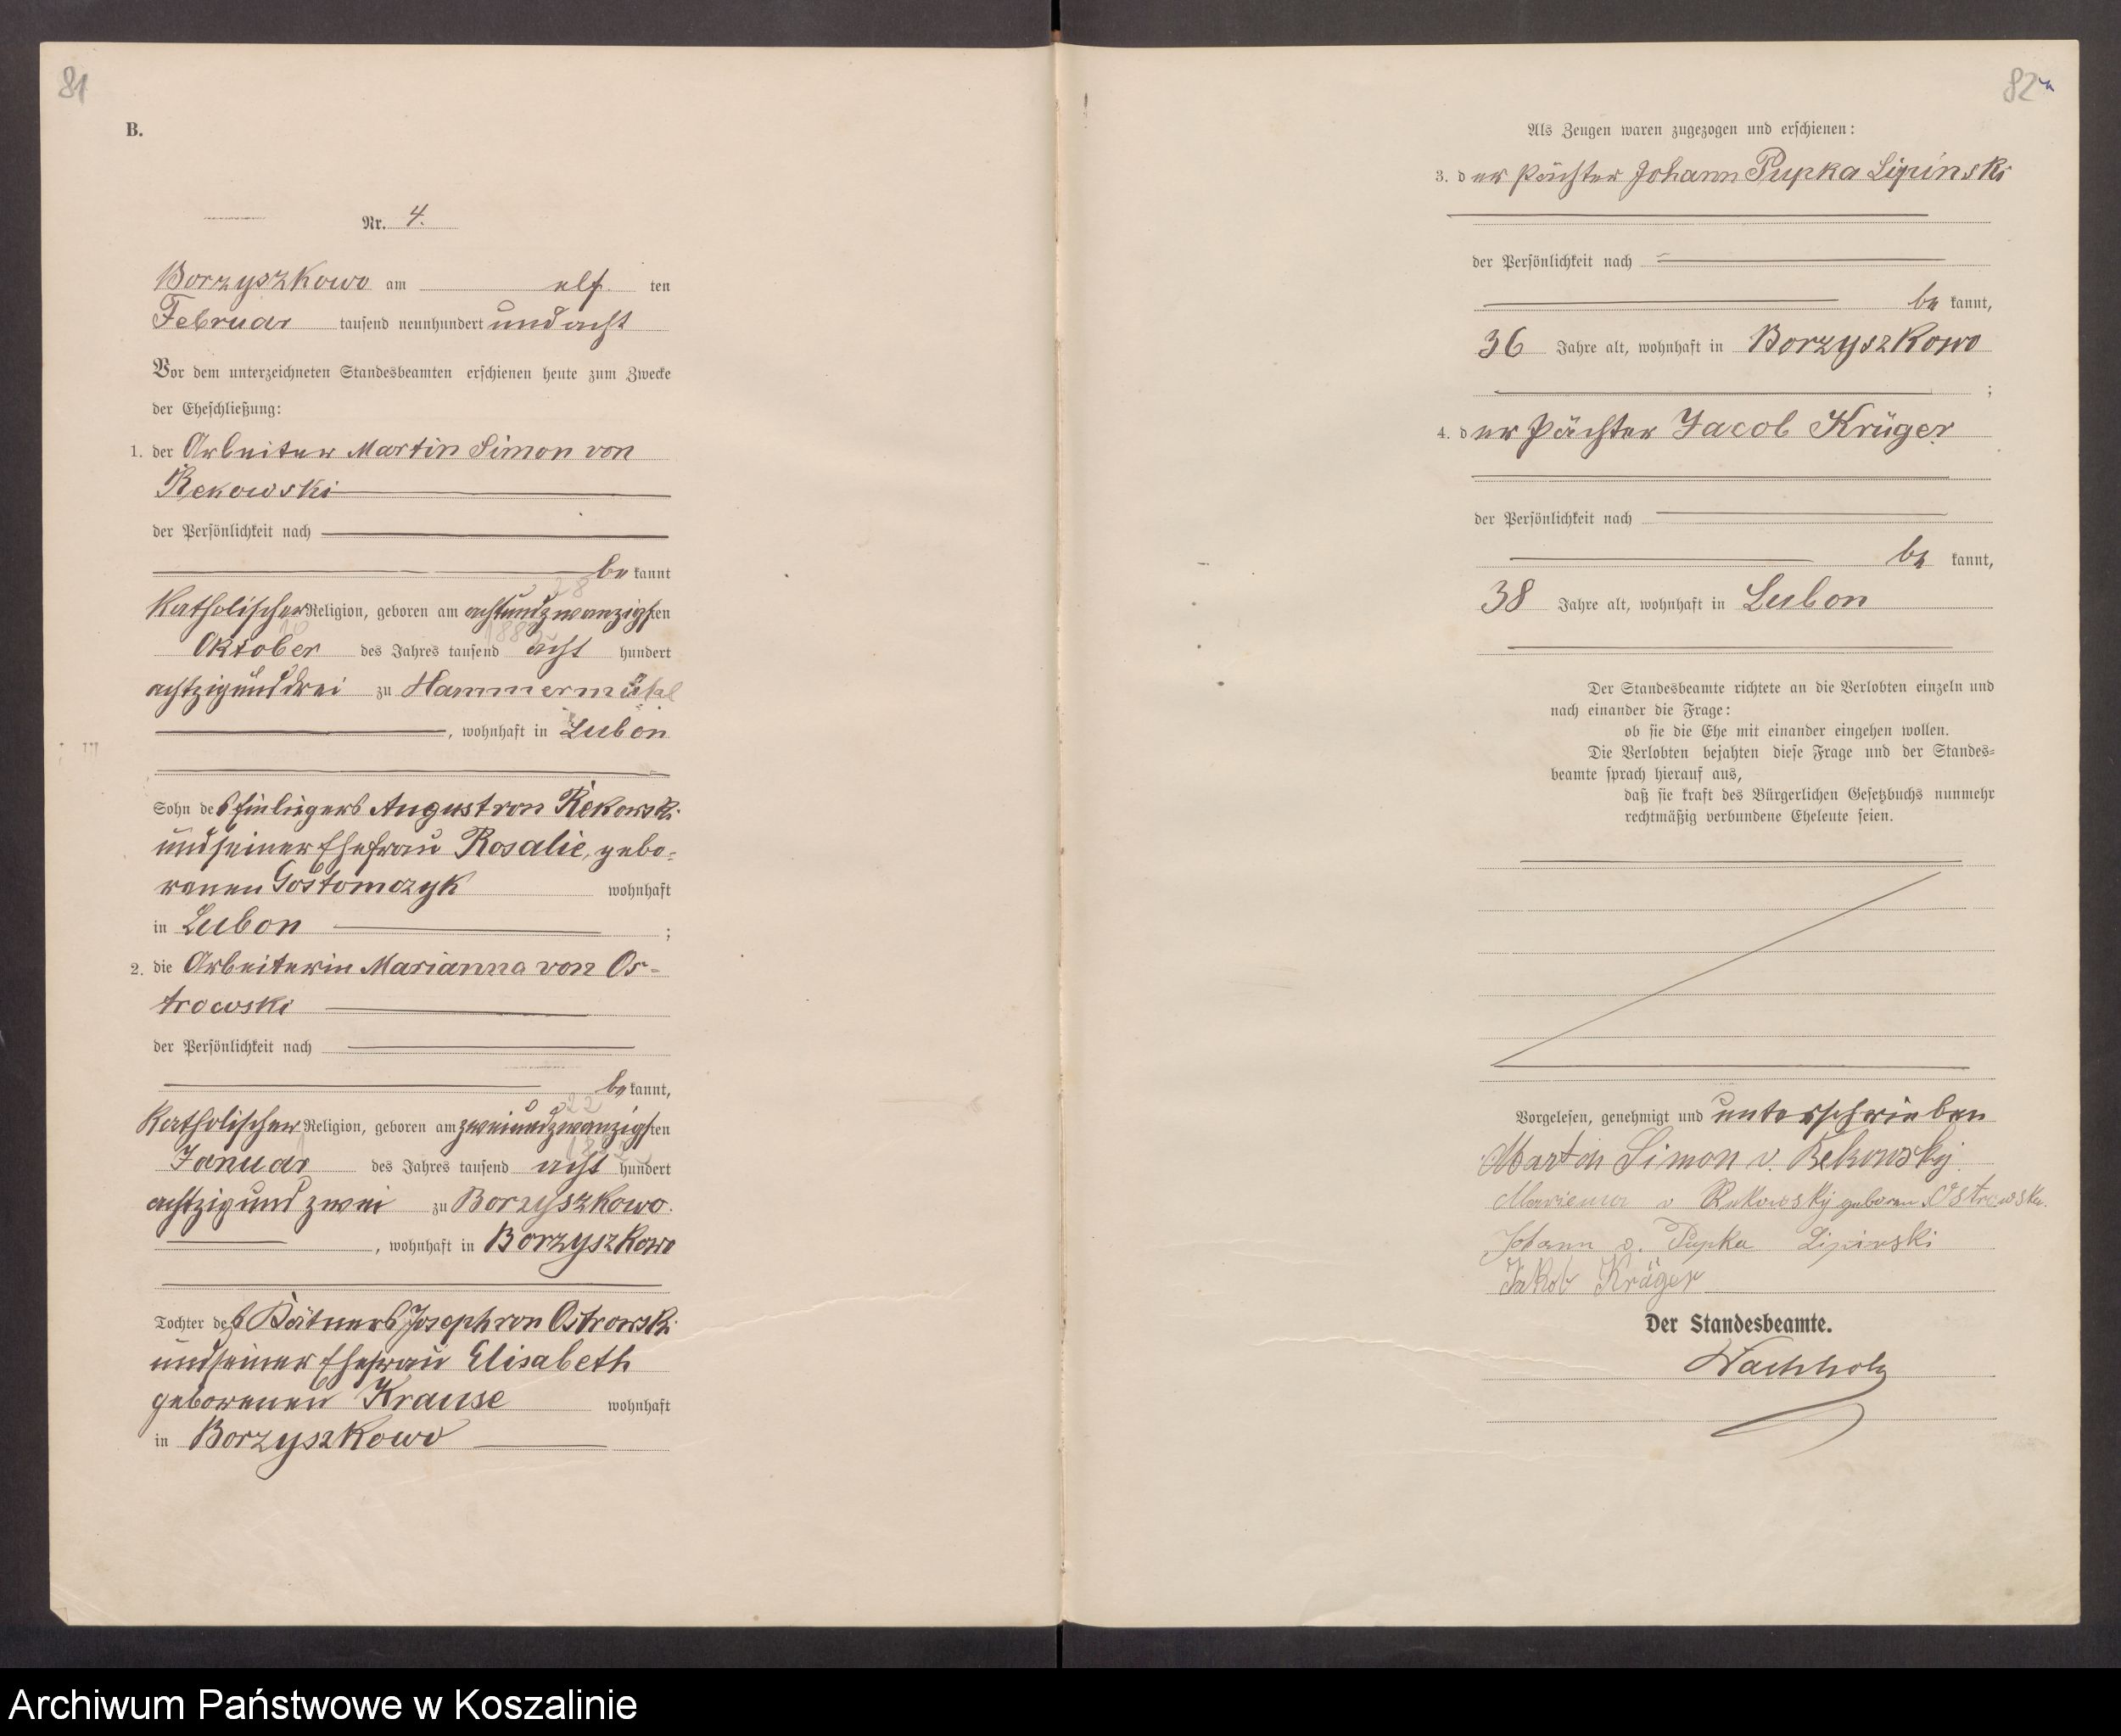 81
B.
Nr. 4.
Borzyszkowo am elf ten
Februar tausend neunhundert und acht
Vor dem unterzeichneten Standesbeamten erschienen heute zum Zwecke
der Eheschließung:
1. der Arbeiter Martin Simon von
Rekowski
der Persönlichkeit nach
be kannt
katholischer Religion, geboren am achtundzwanzigsten
28
Oktober des Jahres tausend acht hundert
10
achtzig und drei zu Hammermühl
, wohnhaft in Lubon
Sohn des Einliegers August von Rekowski
und seiner Ehefrau Rosalie, gebo-
renen Gostomczyk wohnhaft
in Lubon ;
2. die Arbeiterin Marianna von Os-
trowski
der Persönlichkeit nach
be kannt,
katholischer Religion, geboren am zweiundzwanzigsten
22
Januar des Jahres tausend acht hundert
1
achtzig und zwei zu Borzyszkowo.
, wohnhaft in Borzyszkowo
Tochter des Kätners Joseph von Ostrowski
und seiner Ehefrau Elisabeth
geborenen Krause wohnhaft
in Borzyszkowo
82
Als Zeugen waren zugezogen und erschienen:
3. der Pächter Johann Pupka Lipinski
der Persönlichkeit nach
be kannt,
36 Jahre alt, wohnhaft in Borzyszkowo
;
4. der Pächter Jacob Krüger
der Persönlichkeit nach
be kannt,
38 Jahre alt, wohnhaft in Lubon
Der Standesbeamte richtete an die Verlobten einzeln und
nach einander die Frage:
ob sie die Ehe mit einander eingehen wollen.
Die Verlobten bejahten diese Frage und der Standes=
beamte sprach hierauf aus,
daß sie kraft des Bürgerlichen Gesetzbuchs nunmehr
rechtmäßig verbundene Eheleute seien.
Vorgelesen, genehmigt und unterschrieben
Martin Simon v. Rekowsky
v Rekowsky geboren Ostrowska.
Johann v. Pupka Lipinski
Jakob Krüger
Der Standesbeamte.
Wachholz
Archiwum Państwowe w Koszalinie